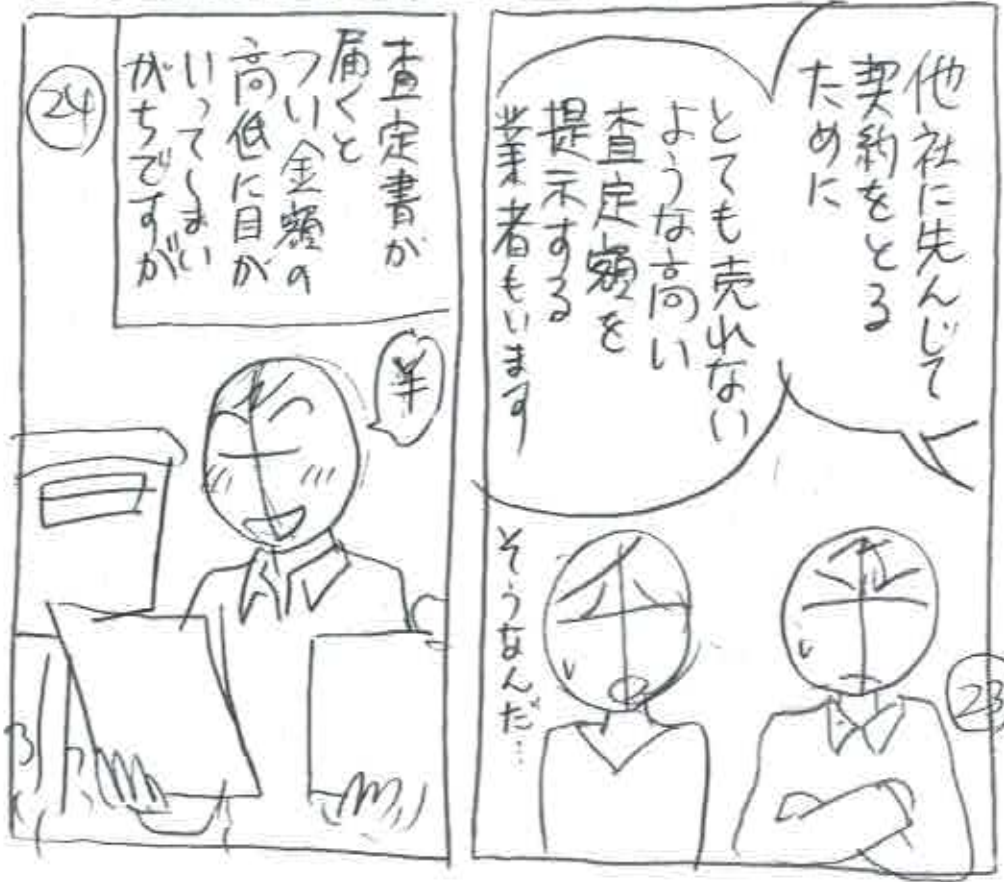 他社に先んじて
契約をとる
ために
とても売れない
ような高い
査定額を
提示する
業者もいます
そうなんだ…
23
査定書が
届くと
つい金額の
高低に目が
いってしまい
がちですが
24
¥